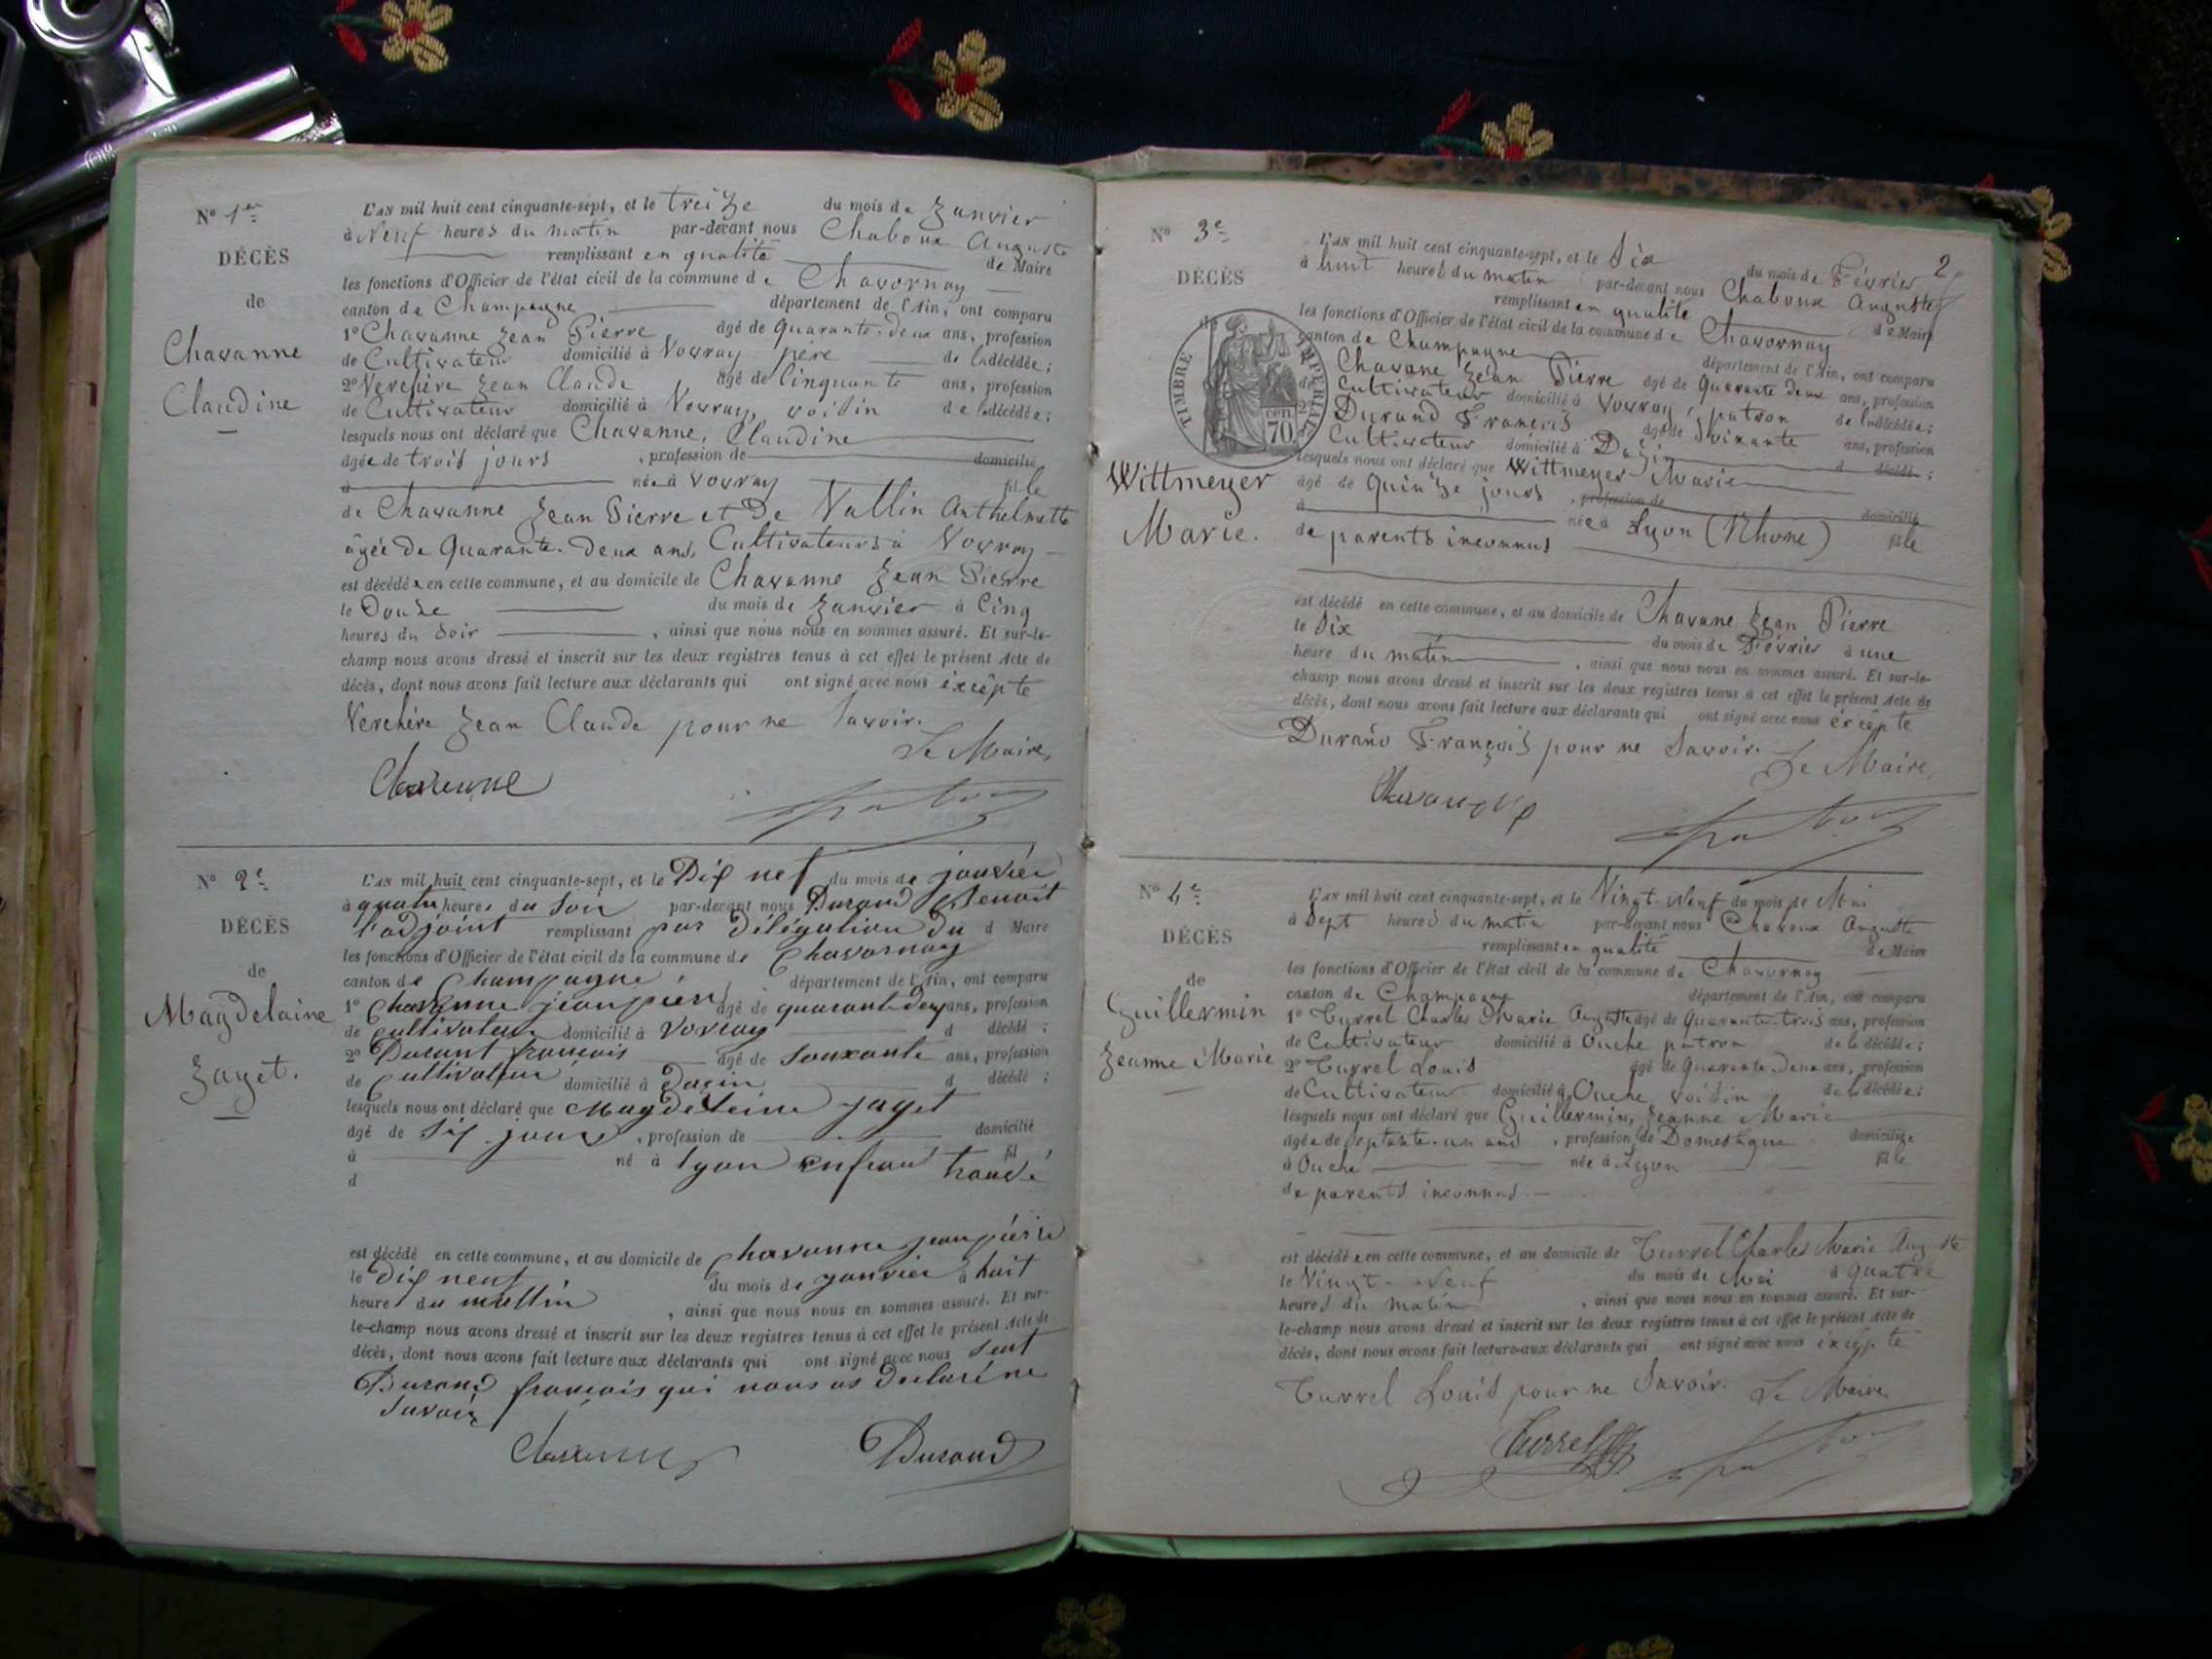 N° 1er
DÉCÈS
de
Chavanne
Claudine
L'AN mil huit cent cinquante-sept, et le treize du mois de Janvier
à Neuf heures du matin par-devant nous Chaboux Auguste
remplissant en qualité de Maire
les fonctions d'Officier de l'état civil de la commune de Chavornay
canton de Champagne département de l'Ain, ont comparu
1° Chavanne Jean Pierre âgé de Quarante-deux ans, profession
de Cultivateur domicilié à Vovray père de la décédée;
2° Jean Claude âgé de Cinquante ans, profession
de Cultivateur domicilié à Vovray, voisin de la décédée;
lesquels nous ont déclaré que Chavanne, Claudine
âgée de trois jours, profession de domicilié
à née à Vovray fille
de Chavanne Jean Pierre et de Vallin Anthelmette
âgée de Quarante-deux ans, Cultivateurs à Vovray
est décédée en cette commune, et au domicile de Chavanne Jean Pierre
le Douze du mois de Janvier à Cinq
heures du soir, ainsi que nous nous en sommes assuré. Et sur-le-
champ nous avons dressé et inscrit sur les deux registres tenus à cet effet le présent Acte de
décès, dont nous avons fait lecture aux déclarants qui ont signé avec nous excepte
Verchère Jean Claude pour ne Savoir.
Le Maire,
Chavanne
N° 2e
DÉCÈS
de
Magdelaine
Jayet.
L'AN mil huit cent cinquante-sept, et le Dix nef du mois de janvier
à quatre heures du Soir par-devant nous Durand Benoit
l'adjoint remplissant par délégation du d Maire
les fonctions d'Officier de l'état civil de la commune de Chavornay
canton de Champagne département de l'Ain, ont comparu
1° Chavanne jean pierre âgé de quarante deux ans, profession
de Cultivateur domicilié à Vovray d décédé;
2° Durant françois âgé de Souxante ans, profession
de Cultivateur domicilié à Dazin d décédé;
lesquels nous ont déclaré que Magdeleine jayet
âgé de Six jours, profession de domicilié
à né à lyon enfant trouvé fil
d
est décédé en cette commune, et au domicile de Chavanne jean pierre
le dix neuf du mois de janvier à huit
heure du mattin, ainsi que nous nous en sommes assuré. Et sur-
le-champ nous avons dressé et inscrit sur les deux registres tenus à cet effet le présent Acte de
décès, dont nous avons fait lecture aux déclarants qui ont signé avec nous Seuf
Durand françois qui nous as declaré ne
Savoir
Chavanne Durand
2
N° 3e
DÉCÈS
de
Wittmeyer
Marie.
TIMBRE IMPÉRIAL
70 cen
L'AN mil huit cent cinquante-sept, et le Dix du mois de Février
à huit heures du matin par-devant nous Chaboux Auguste
remplissant en qualité de Maire
les fonctions d'Officier de l'état civil de la commune de Chavornay
canton de Champagne département de l'Ain, ont comparu
Chavane Jean Pierre âgé de Quarante deux ans, profession
de Cultivateur domicilié à Vovray, patron de la décédée;
2° Durand François âgé de Soixante ans, profession
Cultivateur domicilié à Dazin d décédé;
lesquels nous ont déclaré que Wittmeyer Marie
âgé de Quinze jours, profession de domicilié
à née à Lyon (Rhone) fille
de parents inconnus
est décédé en cette commune, et au domicile de Chavane Jean Pierre
le Dix du mois de Février à une
heure du matin, ainsi que nous nous en sommes assuré. Et sur-le-
champ nous avons dressé et inscrit sur les deux registres tenus à cet effet le présent Acte de
décès, dont nous avons fait lecture aux déclarants qui ont signé avec nous excepte
Durand François pour ne Savoir.
Le Maire,
Chavanne
N° 4e
DÉCÈS
de
Guillermin
Jeanne Marie
L'AN mil huit cent cinquante-sept, et le Vingt-Neuf du mois de Mai
à Sept heures du matin par-devant nous Chaboux Auguste
remplissant en qualité de Maire
les fonctions d'Officier de l'état civil de la commune de Chavornay
canton de Champagne département de l'Ain, ont comparu
1° Turrel Charles Marie Auguste âgé de Quarante-trois ans, profession
de Cultivateur domicilié à Ouche patron de la décédée;
2° Turrel Louis âgé de Quarante-deux ans, profession
de Cultivateur domicilié à Ouche voisin de la décédée;
lesquels nous ont déclaré que Guillermin, Jeanne Marie
âgée de Septante-un ans, profession de Domestique domiciliée
à Ouche née à Lyon fille
de parents inconnus
est décédée en cette commune, et au domicile de Turrel Charles Marie Auguste
le Vingt-Neuf du mois de Mai à Quatre
heures du matin, ainsi que nous nous en sommes assuré. Et sur-
le-champ nous avons dressé et inscrit sur les deux registres tenus à cet effet le présent Acte de
décès, dont nous avons fait lecture aux déclarants qui ont signé avec nous excepte
Turrel Louis pour ne Savoir. Le Maire
Turrel